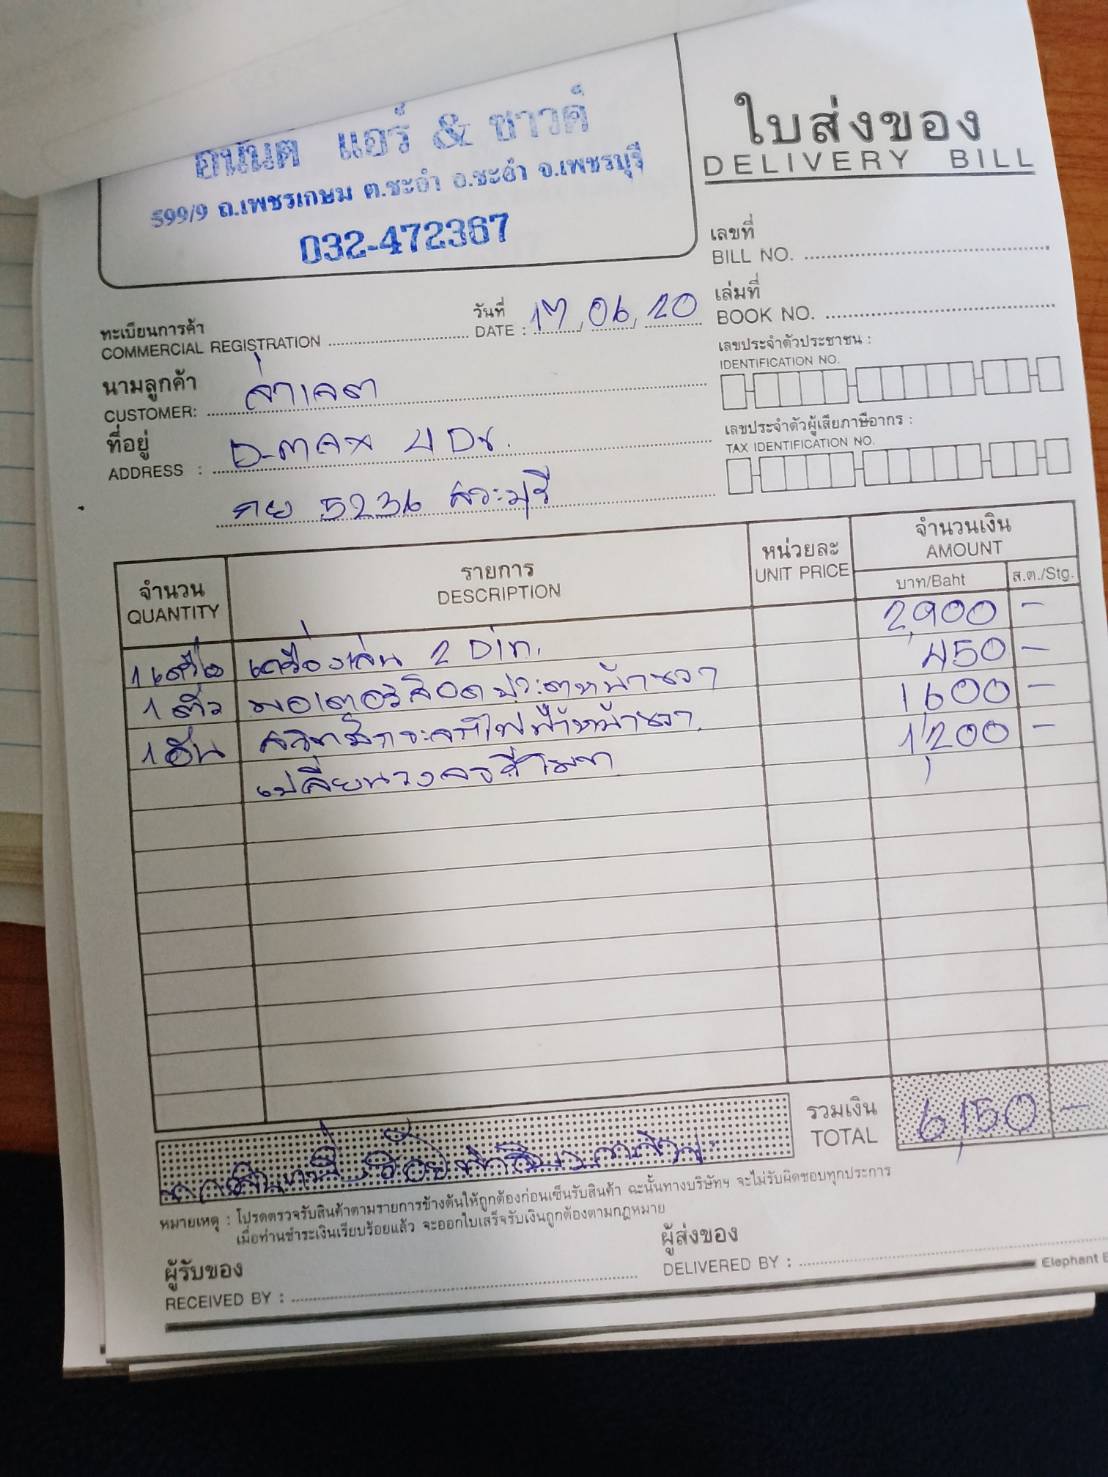 อนันต์ แอร์ & ซาวด์
599/9 ถ.เพชรเกษม ต.ชะอำ อ.ชะอำ จ.เพชรบุรี
032-472367
ใบส่งของ
DELIVERY BILL
เลขที่
BILL NO.
เล่มที่
BOOK NO.
ทะเบียนการค้า
COMMERCIAL REGISTRATION
วันที่
DATE : 17, 06, 20
เลขประจำตัวประชาชน :
IDENTIFICATION NO.
นามลูกค้า
CUSTOMER:
ที่อยู่
ADDRESS : D-max 4 Dr.
5236 สระบุรี
เลขประจำตัวผู้เสียภาษีอากร :
TAX IDENTIFICATION NO.
จำนวน
QUANTITY
รายการ
DESCRIPTION
หน่วยละ
UNIT PRICE
จำนวนเงิน
AMOUNT
บาท/Baht
ส.ต./Stg.
1 เครื่อง เครื่องเล่น 2 Din. 2,900 -
1 ตัว มอเตอร์ล็อคประตูหน้าขวา 450 -
1 อัน สวิทช์กระจกไฟฟ้าหน้าขวา 1,600 -
1,200 -
รวมเงิน
TOTAL
6,150 -
หมายเหตุ : โปรดตรวจรับสินค้าตามรายการข้างต้นให้ถูกต้องก่อนเซ็นรับสินค้า ฉะนั้นทางบริษัทฯ จะไม่รับผิดชอบทุกประการ
เมื่อท่านชำระเงินเรียบร้อยแล้ว จะออกใบเสร็จรับเงินถูกต้องตามกฎหมาย
ผู้รับของ
RECEIVED BY :
ผู้ส่งของ
DELIVERED BY :
Elephant